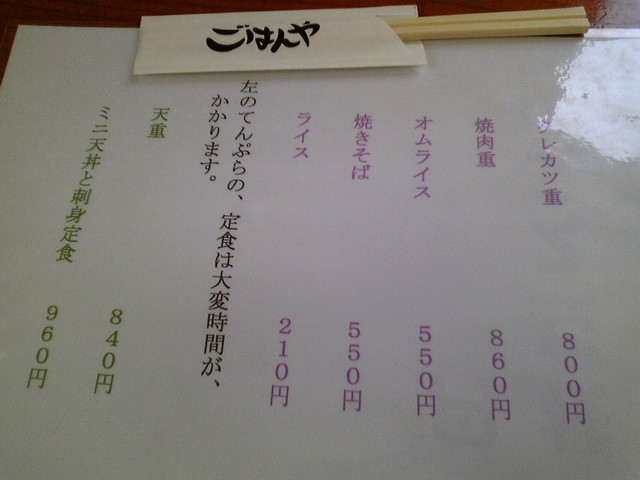 ごはんや
レカツ重 800円
焼肉重 860円
オムライス 550円
焼きそば 550円
ライス 210円
左のてんぷらの、定食は大変時間が、
かかります。
天重 840円
ミニ天丼と刺身定食 960円